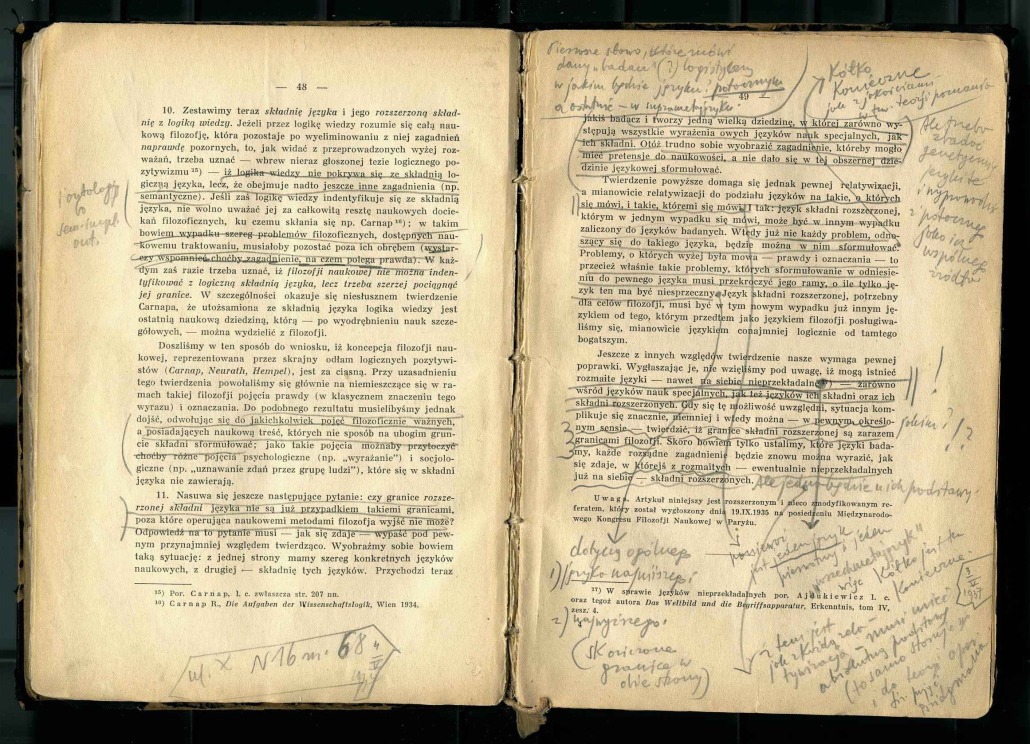 — 48 —
10. Zestawimy teraz składnię języka i jego rozszerzoną skład-
nię z logiką wiedzy. Jeżeli przez logikę wiedzy rozumie się całą nau-
kową filozofję, która pozostaje po wyeliminowaniu z niej zagadnień
naprawdę pozornych, to, jak widać z przeprowadzonych wyżej roz-
ważań, trzeba uznać — wbrew nieraz głoszonej tezie logicznego po-
zytywizmu ¹⁵) — iż logika wiedzy nie pokrywa się ze składnią lo-
giczną języka, lecz, że obejmuje nadto jeszcze inne zagadnienia (np.
semantyczne). Jeśli zaś logikę wiedzy indentyfikuje się ze składnią
języka, nie wolno uważać jej za całkowitą resztę naukowych docie-
kań filozoficznych, ku czemu skłania się np. Carnap ¹⁶); w takim
bowiem wypadku szereg problemów filozoficznych, dostępnych nau-
kowemu traktowaniu, musiałoby pozostać poza ich obrębem (wystar-
czy wspomnieć choćby zagadnienie, na czem polega prawda). W każ-
dym zaś razie trzeba uznać, iż filozofji naukowej nie można inden-
tyfikować z logiczną składnią języka, lecz trzeba szerzej pociągnąć
jej granice. W szczególności okazuje się niesłusznem twierdzenie
Carnapa, że utożsamiona ze składnią języka logika wiedzy jest
ostatnią naukową dziedziną, którą — po wyodrębnieniu nauk szcze-
gółowych, — można wydzielić z filozofji.
Doszliśmy w ten sposób do wniosku, iż koncepcja filozofji nau-
kowej, reprezentowana przez skrajny odłam logicznych pozytywi-
stów (Carnap, Neurath, Hempel), jest za ciasną. Przy uzasadnieniu
tego twierdzenia powołaliśmy się głównie na niemieszczące się w ra-
mach takiej filozofji pojęcia prawdy (w klasycznem znaczeniu tego
wyrazu) i oznaczania. Do podobnego rezultatu musielibyśmy jednak
dojść, odwołując się do jakichkolwiek pojęć filozoficznie ważnych,
a posiadających naukową treść, których nie sposób na ubogim grun-
cie składni sformułować; jako takie pojęcia możnaby przytoczyć
choćby różne pojęcia psychologiczne (np. „wyrażanie”) i socjolo-
giczne (np. „uznawanie zdań przez grupę ludzi”), które się w składni
języka nie zawierają.
11. Nasuwa się jeszcze następujące pytanie: czy granice rozsze-
rzonej składni języka nie są już przypadkiem takiemi granicami,
poza które operująca naukowemi metodami filozofja wyjść nie może?
Odpowiedź na to pytanie musi — jak się zdaje — wypaść pod pew-
nym przynajmniej względem twierdząco. Wyobraźmy sobie bowiem
taką sytuację: z jednej strony mamy szereg konkretnych języków
naukowych, z drugiej — składnię tych języków. Przychodzi teraz
¹⁵) Por. Carnap, l. c. zwłaszcza str. 207 nn.
¹⁶) Carnap R., Die Aufgaben der Wissenschaftslogik, Wien 1934.
ul. X N 16 m. 68
Pierwsze słowo, które mówi
dany „badacz” (?) logistyków
w jakim będzie języku: potocznym
a ostatnie — w supremetajęzyku.
49 —
Kółko
Konieczne
jak z jakościami
w tzw. teorji poznania
jakiś badacz i tworzy jedną wielką dziedzinę, w której zarówno wy-
stępują wszystkie wyrażenia owych języków nauk specjalnych, jak
ich składni. Otóż trudno sobie wyobrazić zagadnienie, któreby mogło
mieć pretensje do naukowości, a nie dało się w tej obszernej dzie-
dzinie językowej sformułować.
Twierdzenie powyższe domaga się jednak pewnej relatywizacji,
a mianowicie relatywizacji do podziału języków na takie, o których
się mówi, i takie, któremi się mówi. I tak: język składni rozszerzonej,
którym w jednym wypadku się mówi, może być w innym wypadku
zaliczony do języków badanych. Wtedy już nie każdy problem, odno-
szący się do takiego języka, będzie można w nim sformułować.
Problemy, o których wyżej była mowa — prawdy i oznaczania — to
przecież właśnie takie problemy, których sformułowanie w odniesie-
niu do pewnego języka musi przekroczyć jego ramy, o ile tylko ję-
zyk ten ma być niesprzeczny. Język składni rozszerzonej, potrzebny
dla celów filozofji, musi być w tym nowym wypadku już innym ję-
zykiem od tego, którym przedtem jako językiem filozofji posługiwa-
liśmy się, mianowicie językiem conajmniej logicznie od tamtego
bogatszym.
Jeszcze z innych względów twierdzenie nasze wymaga pewnej
poprawki. Wygłaszając je, nie wzięliśmy pod uwagę, iż mogą istnieć
rozmaite języki — nawet na siebie nieprzekładalne ¹⁷) — zarówno
wśród języków nauk specjalnych, jak też języków ich składni oraz ich
składni rozszerzonych. Gdy się tę możliwość uwzględni, sytuacja kom-
plikuje się znacznie, niemniej i wtedy można — w pewnym, określo-
nym sensie — twierdzić, iż granice składni rozszerzonej są zarazem
granicami filozofji. Skoro bowiem tylko ustalimy, które języki bada-
my, każde rozsądne zagadnienie będzie znowu można wyrazić, jak
się zdaje, w którejś z rozmaitych — ewentualnie nieprzekładalnych
już na siebie — składni rozszerzonych.
Uwaga. Artykuł niniejszy jest rozszerzonym i nieco zmodyfikowanym re-
feratem, który został wygłoszony dnia 19.IX.1935 na posiedzeniu Międzynarodo-
wego Kongresu Filozofji Naukowej w Paryżu.
dotyczy ogólnego
1) języka najniższego i
¹⁷) W sprawie języków nieprzekładalnych por. Ajdukiewicz l. c.
oraz tegoż autora Das Weltbild und die Begriffsapparatur, Erkenntnis, tom IV,
zesz. 4.
2) najwyższego.
(skończone
granice w
obie strony)